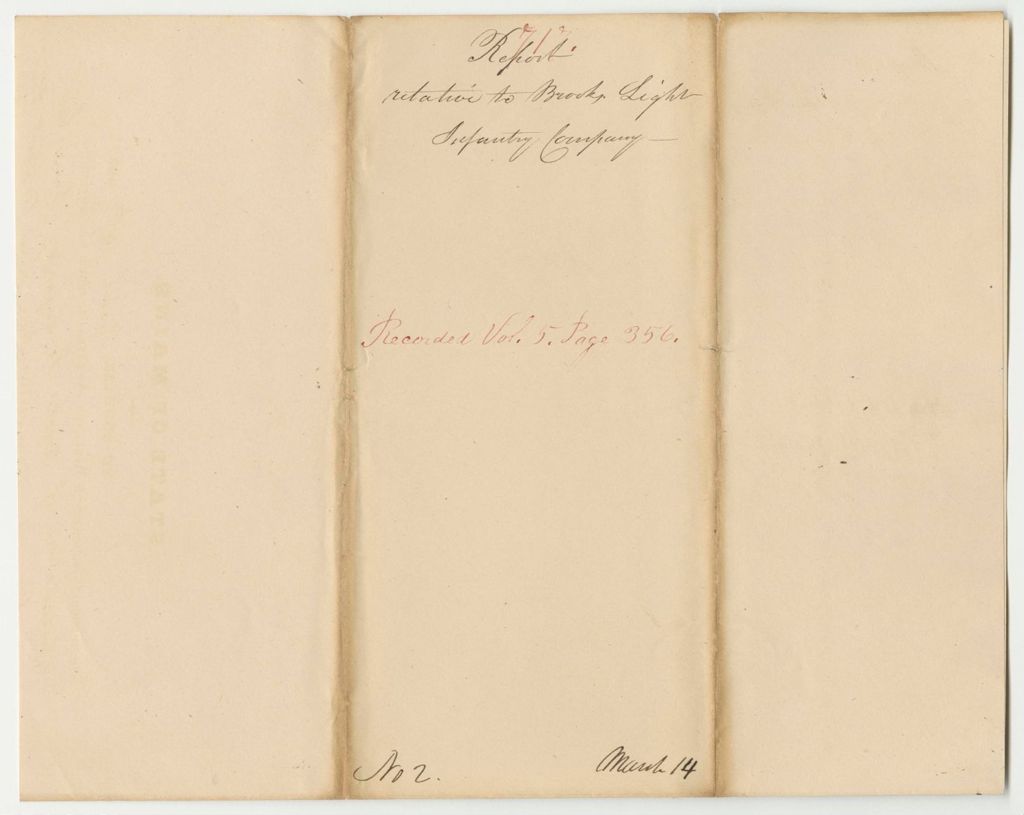 717.
Report
relative to Brooks Light
Infantry Company —
Recorded Vol. 5. Page 356.
No 2.
March 14
STATE OF MAINE